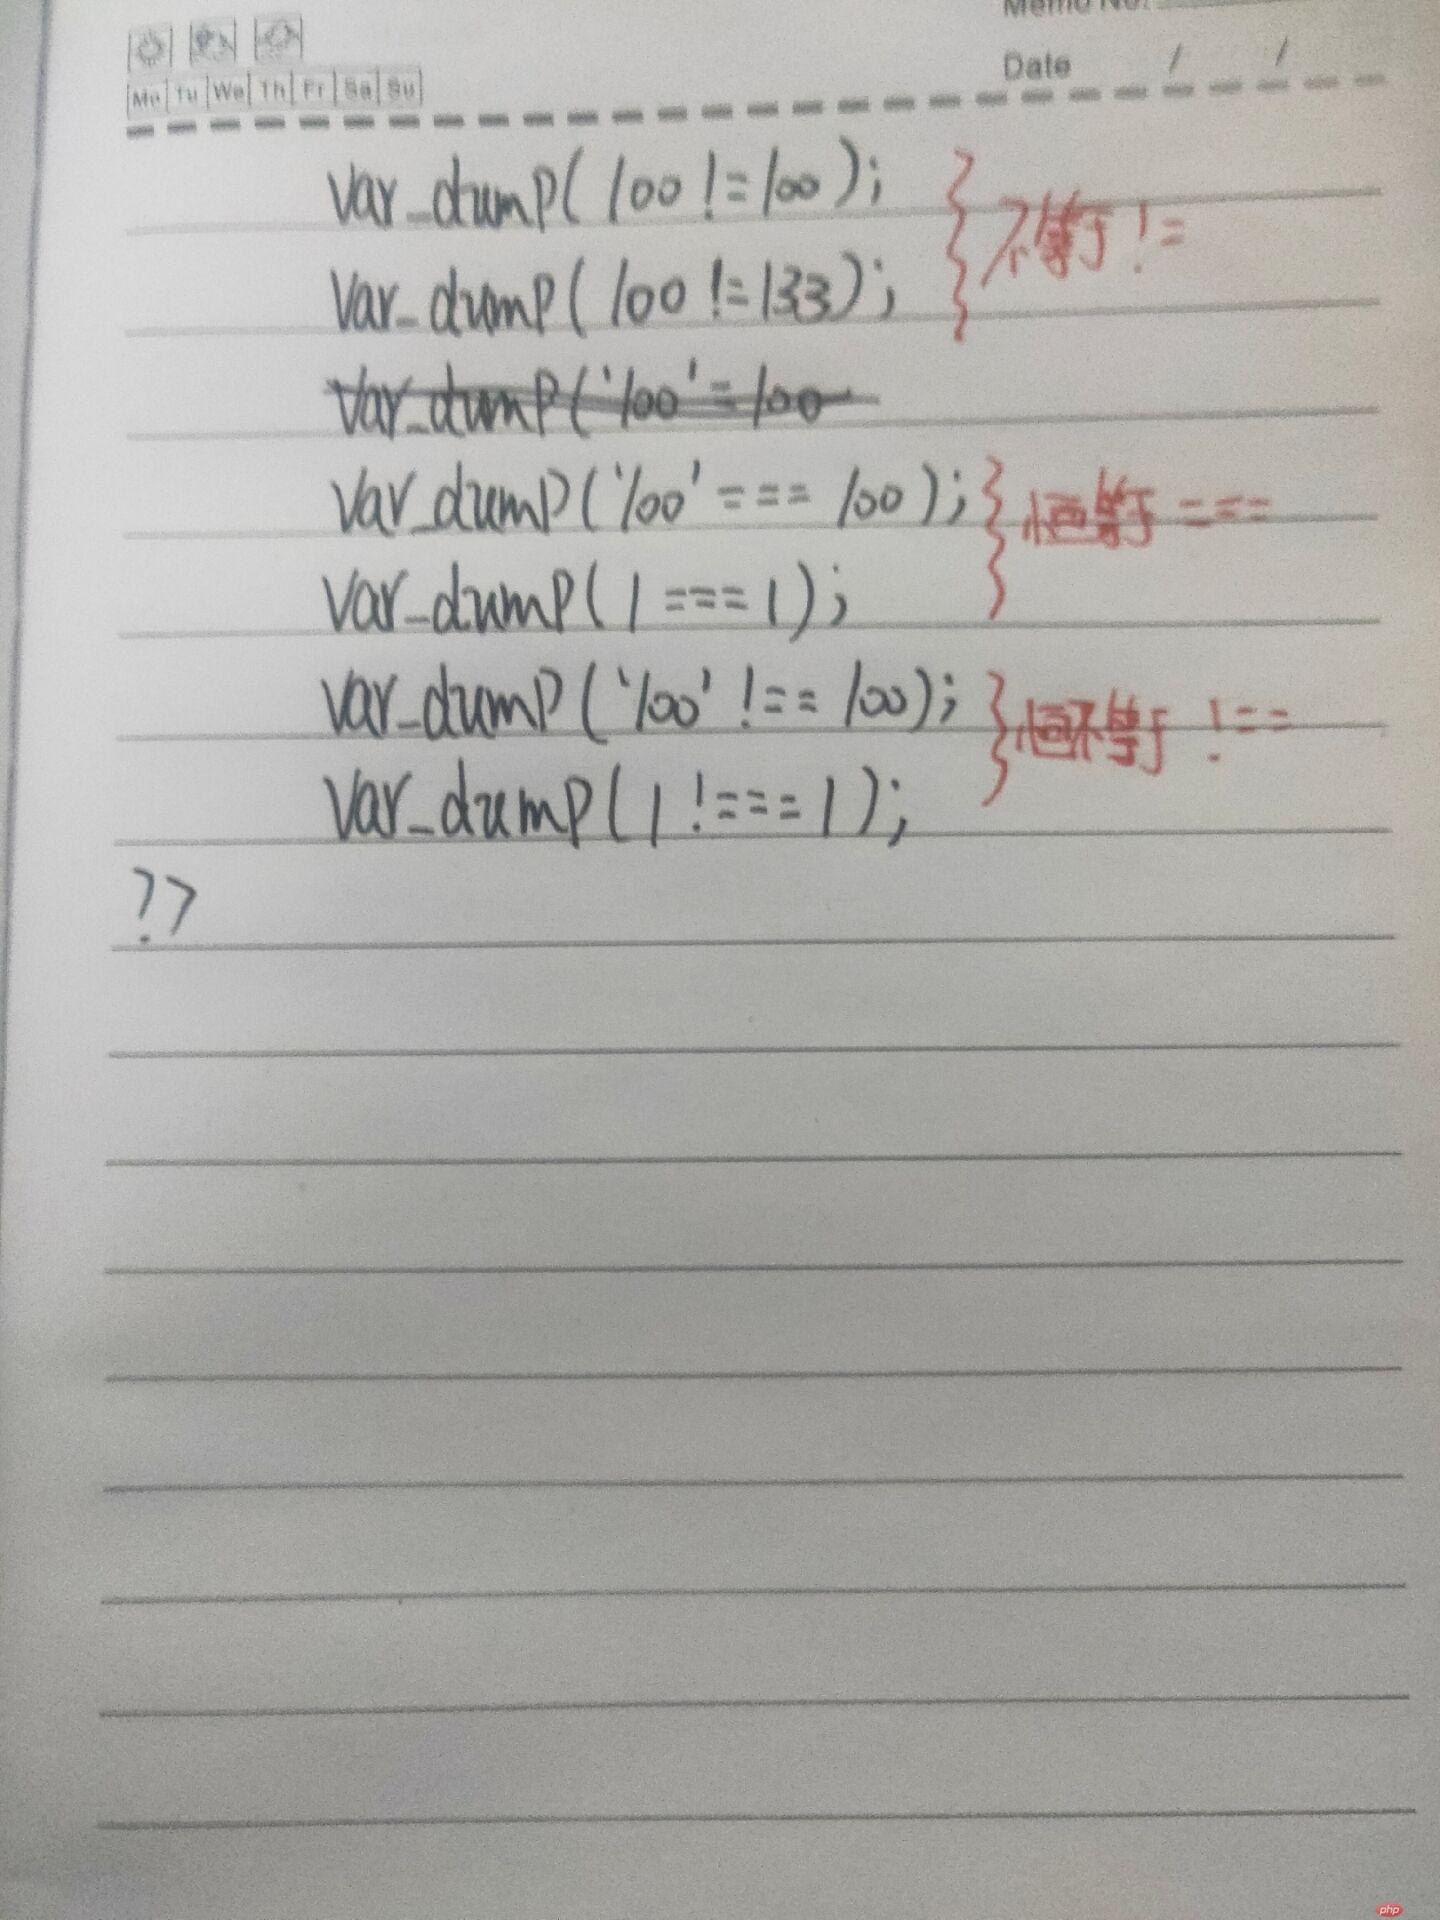 Memo No.
Date / /
Mo Tu We Th Fr Sa Su
var_dump(100 != 100);
var_dump(100 != 133);
不等于 !=
var_dump('100' = 100
var_dump('100' === 100);
恒等于 ===
var_dump(1 === 1);
var_dump('100' !== 100);
恒不等于 !==
var_dump(1 !=== 1);
?>
php